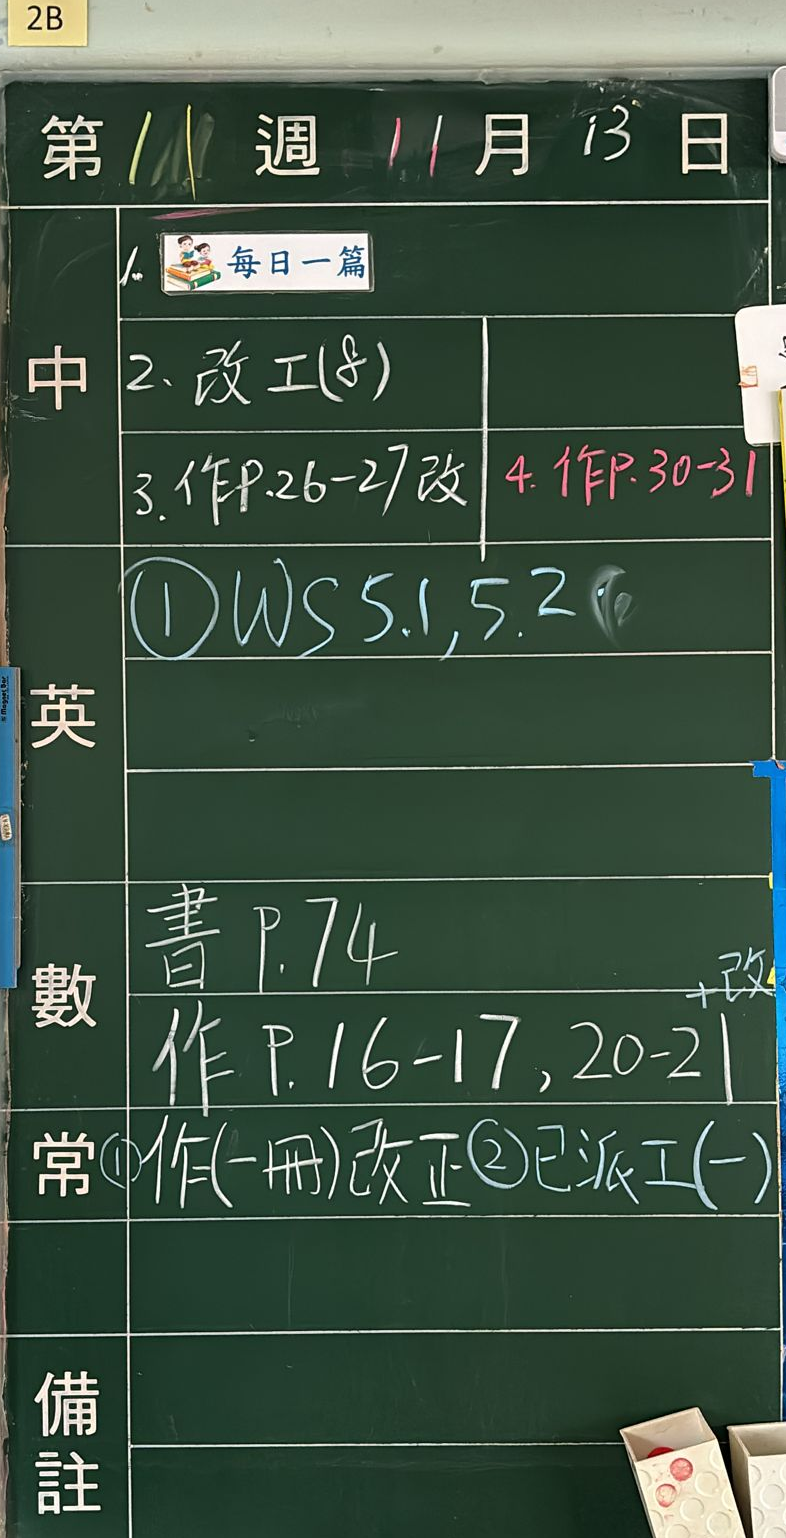 2B
第 11 週 11 月 13 日
中
1. 每日一篇
2. 改工(8)
3. 作P.26-27改 4. 作P.30-31
英
① WS 5.1, 5.2
數
書 P.74
+改
作 P.16-17, 20-21
常 ①作(一冊)改正 ②已派工(一)
備註